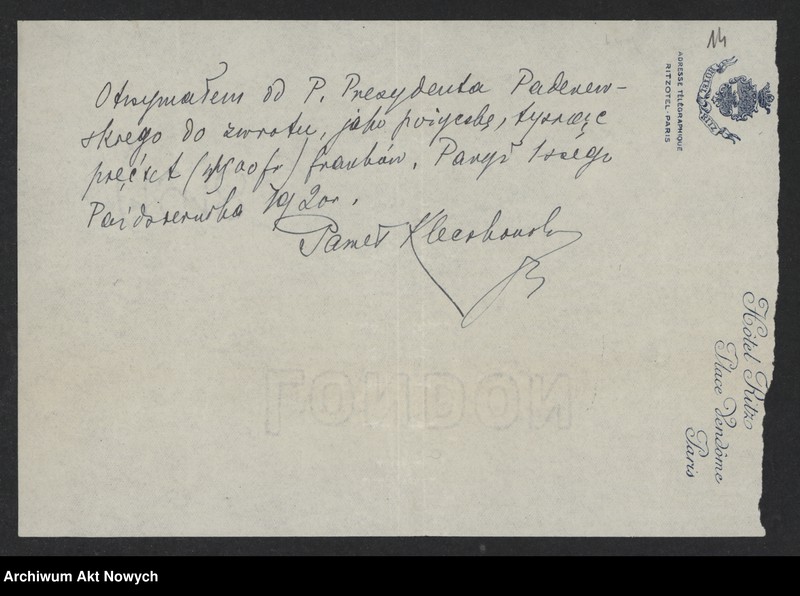 14
Otrzymałem od P. Prezydenta Paderew-
skiego do zwrotu, jako pożyczkę, tysiąc
pięćset (1500 fr) franków. Paryż 1szego
Października 1920r.
Paweł Kleczkowski
ADRESSE TÉLÉGRAPHIQUE
RITZOTEL-PARIS
Hôtel Ritz
Place Vendôme
Paris
LONDON
Archiwum Akt Nowych